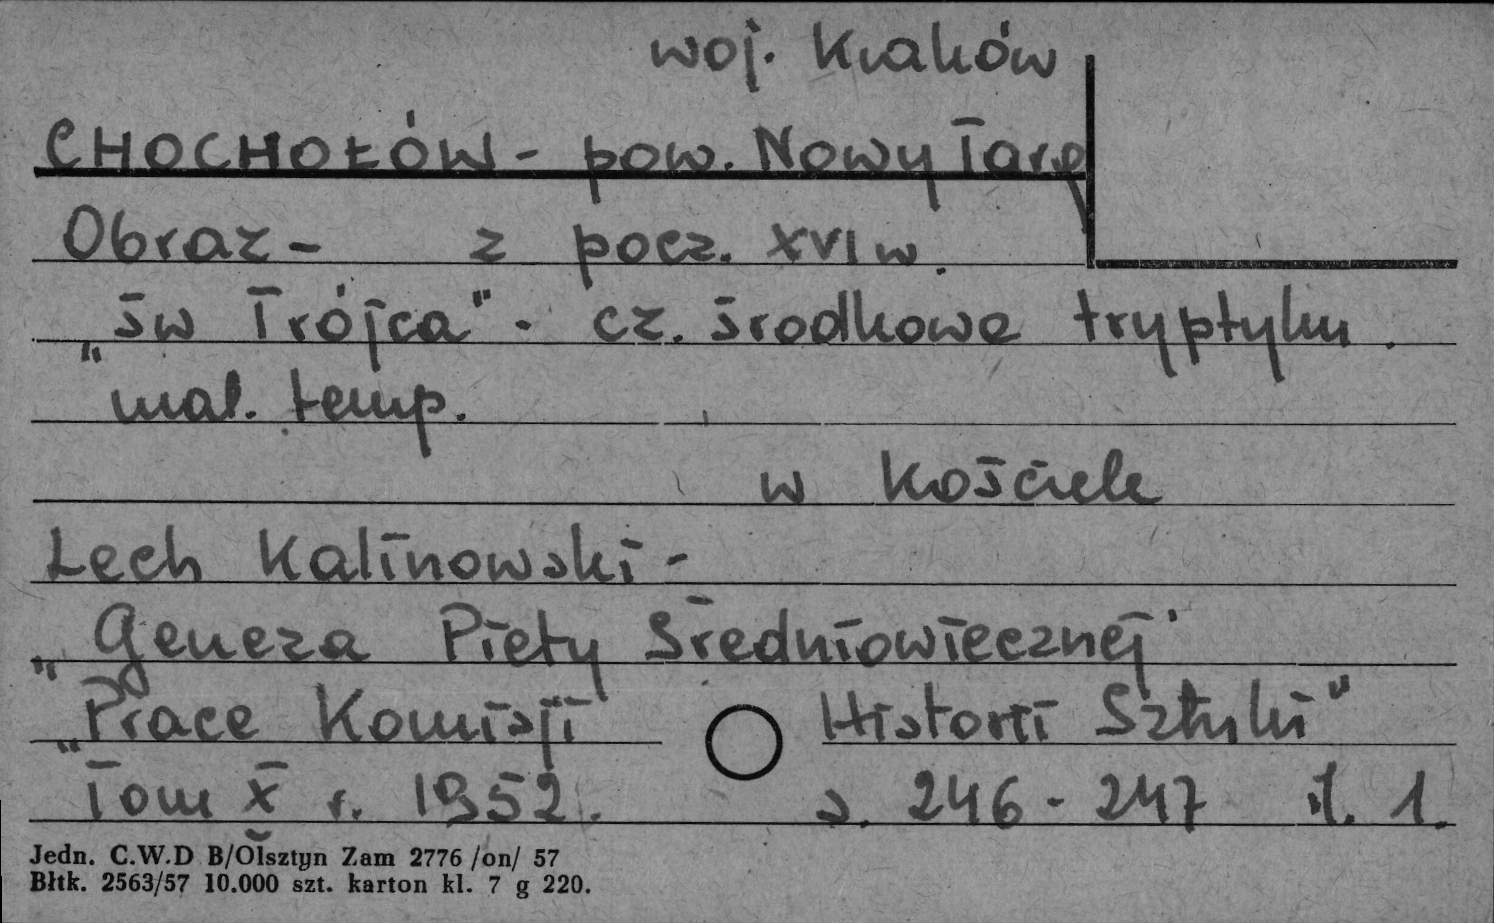 woj. Kraków
CHOCHOŁÓW - pow. Nowy Targ
Obraz - z pocz. XVI w.
„św Trójca" - cz. środkowe tryptyku.
mal. temp.
w kościele
Lech Kalinowski -
„Geneza Piety Średniowiecznej"
„Prace Komisji Historii Sztuki"
Tom X r. 1952. s. 246 - 247 il. 1.
Jedn. C.W.D B/Olsztyn Zam 2776 /on/ 57
Błtk. 2563/57 10.000 szt. karton kl. 7 g 220.